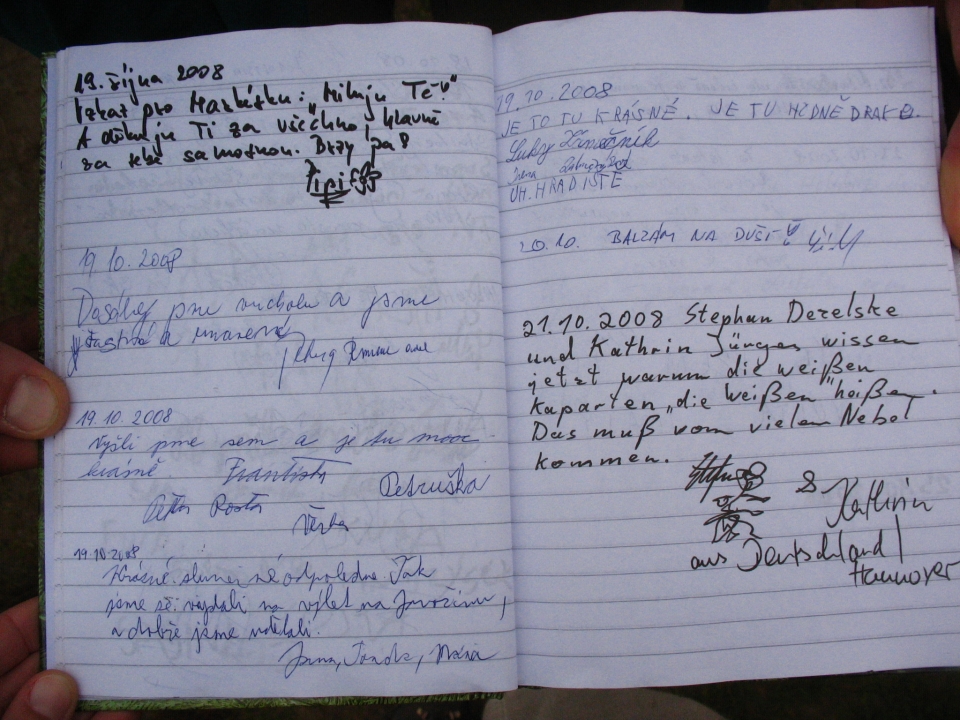 19. října 2008
Vzkaz pro Markétku: „Miluju Tě"
A děkuju Ti za všechno! Hlavně
za tebe samotnou. Brzy pa
19 10. 2008
jsme vrcholu a jsme
šťastní a unavení
19. 10. 2008
Vyšli jsme sem a je tu mooc
krásně. František
Petruška
Petr
19.10.2008
Krásné slunečné odpoledne. Tak
jsme si vyjeli na výlet na Javořinu,
a dobře jsme udělali.
Jana,
19.10.2008
JE TO TU KRÁSNÉ. JE TU HODNĚ DRAKŮ.
Lukáš
UH. HRADIŠTĚ
20.10. BALZÁM NA DUŠI
21.10.2008 Stephan Derelske
und Kathrin Jürges wissen
jetzt warum die weißen
Kaparten „die weißen" heißen.
Das muß vom vielen Nebel
kommen.
& Kathrin
aus Deutschland
Hannover